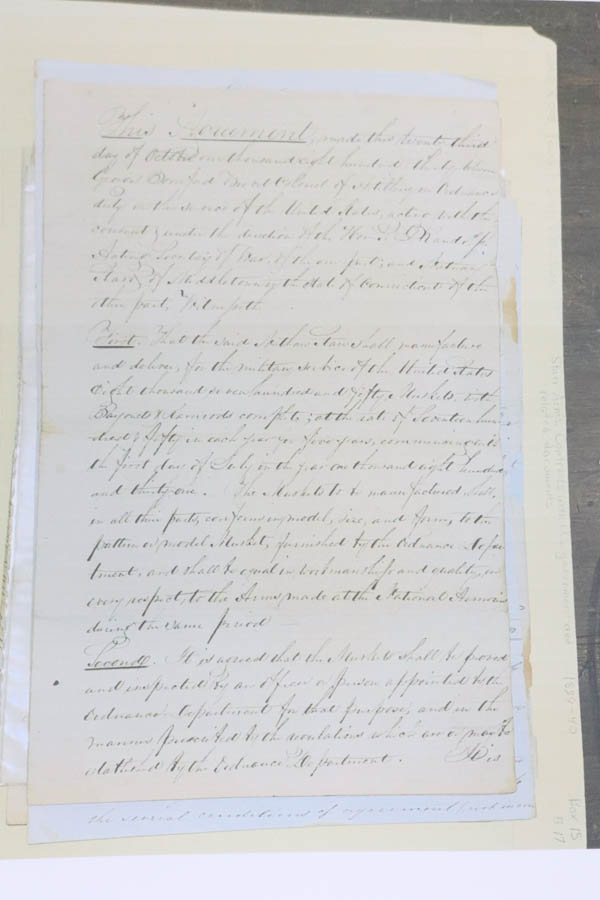 This Agreement, made this twenty third
day of October one thousand eight hundred thirty, between
George Bomford Brevet Colonel of Artillery on Ordnance
duty in the service of the United States, acting with the
consent, & under the direction of the Hon. P. G. Randolph
Acting Secretary of War, of the one part; and Nathan
Starr of Middletown in the State of Connecticut of the
other part, Witnesseth
First, That the said Nathan Starr shall, manufacture
and deliver, for the military service of the United States
Eight thousand seven hundred and fifty Muskets, with
Bayonets & Ramrods complete; at the rate of Seventeen hun
dred & fifty in each year for five years, commencing on
the first day of July, in the year one thousand eight hundred
and thirty one. The Muskets to be manufactured shall,
in all their parts, conform in model, size, and form, to the
pattern or model Musket, furnished by the Ordnance Depar
tment, and shall be equal in workmanship and quality, in
every respect, to the Arms, made at the National Armories
during the same period
Second, It is agreed that the Muskets shall be proved
and inspected by an officer or person appointed by the
Ordnance Department for that purpose, and in the
manner prescribed by the regulations which are or may be
established by the Ordnance Department.
the several conditions of agreement
Box 15